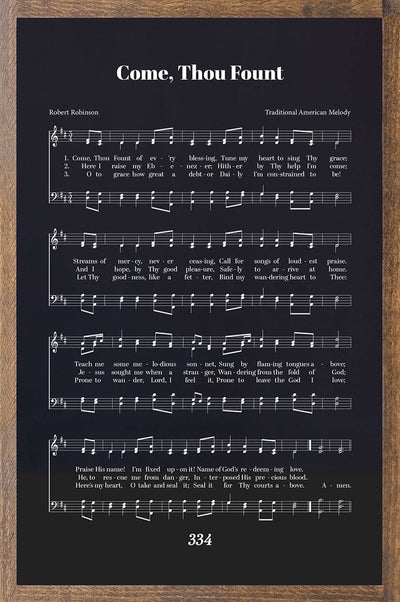 Come, Thou Fount
Robert Robinson Traditional American Melody
1. Come, Thou Fount of ev - 'ry bless-ing, Tune my heart to sing Thy grace;
2. Here I raise my Eb - e - nez - er; Hith - er by Thy help I'm come;
3. O to grace how great a debt - or Dai - ly I'm con-strained to be!
Streams of mer - cy, nev - er ceas-ing, Call for songs of loud - est praise.
And I hope, by Thy good pleas-ure, Safe - ly to ar - rive at home.
Let Thy good-ness, like a fet - ter, Bind my wan-dering heart to Thee:
Teach me some me - lodious son-net, Sung by flaming tongues a - bove;
Je - sus sought me when a stran-ger, Wan-dering from the fold of God;
Prone to wan - der, Lord, I feel it, Prone to leave the God I love;
Praise His name! I'm fixed up - on it! Name of God's re - deem - ing love.
He, to res - cue me from dan-ger, In - ter-posed His pre - cious blood.
Here's my heart, O take and seal it; Seal it for Thy courts a - bove. A - men.
334